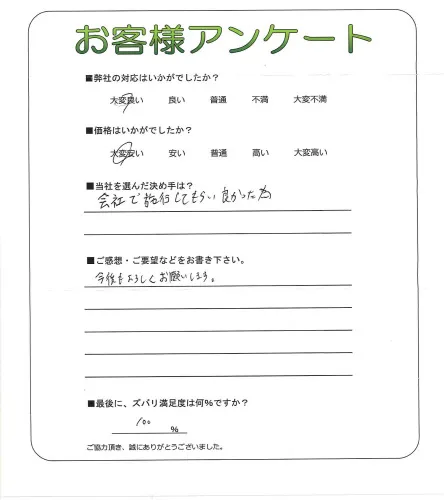 お客様アンケート
■弊社の対応はいかがでしたか？
大変良い 良い 普通 不満 大変不満
■価格はいかがでしたか？
大変安い 安い 普通 高い 大変高い
■当社を選んだ決め手は？
会社で してもらい良かった為
■ご感想・ご要望などをお書き下さい。
今後もよろしくお願いします。
■最後に、ズバリ満足度は何％ですか？
100 ％
ご協力頂き、誠にありがとうございました。